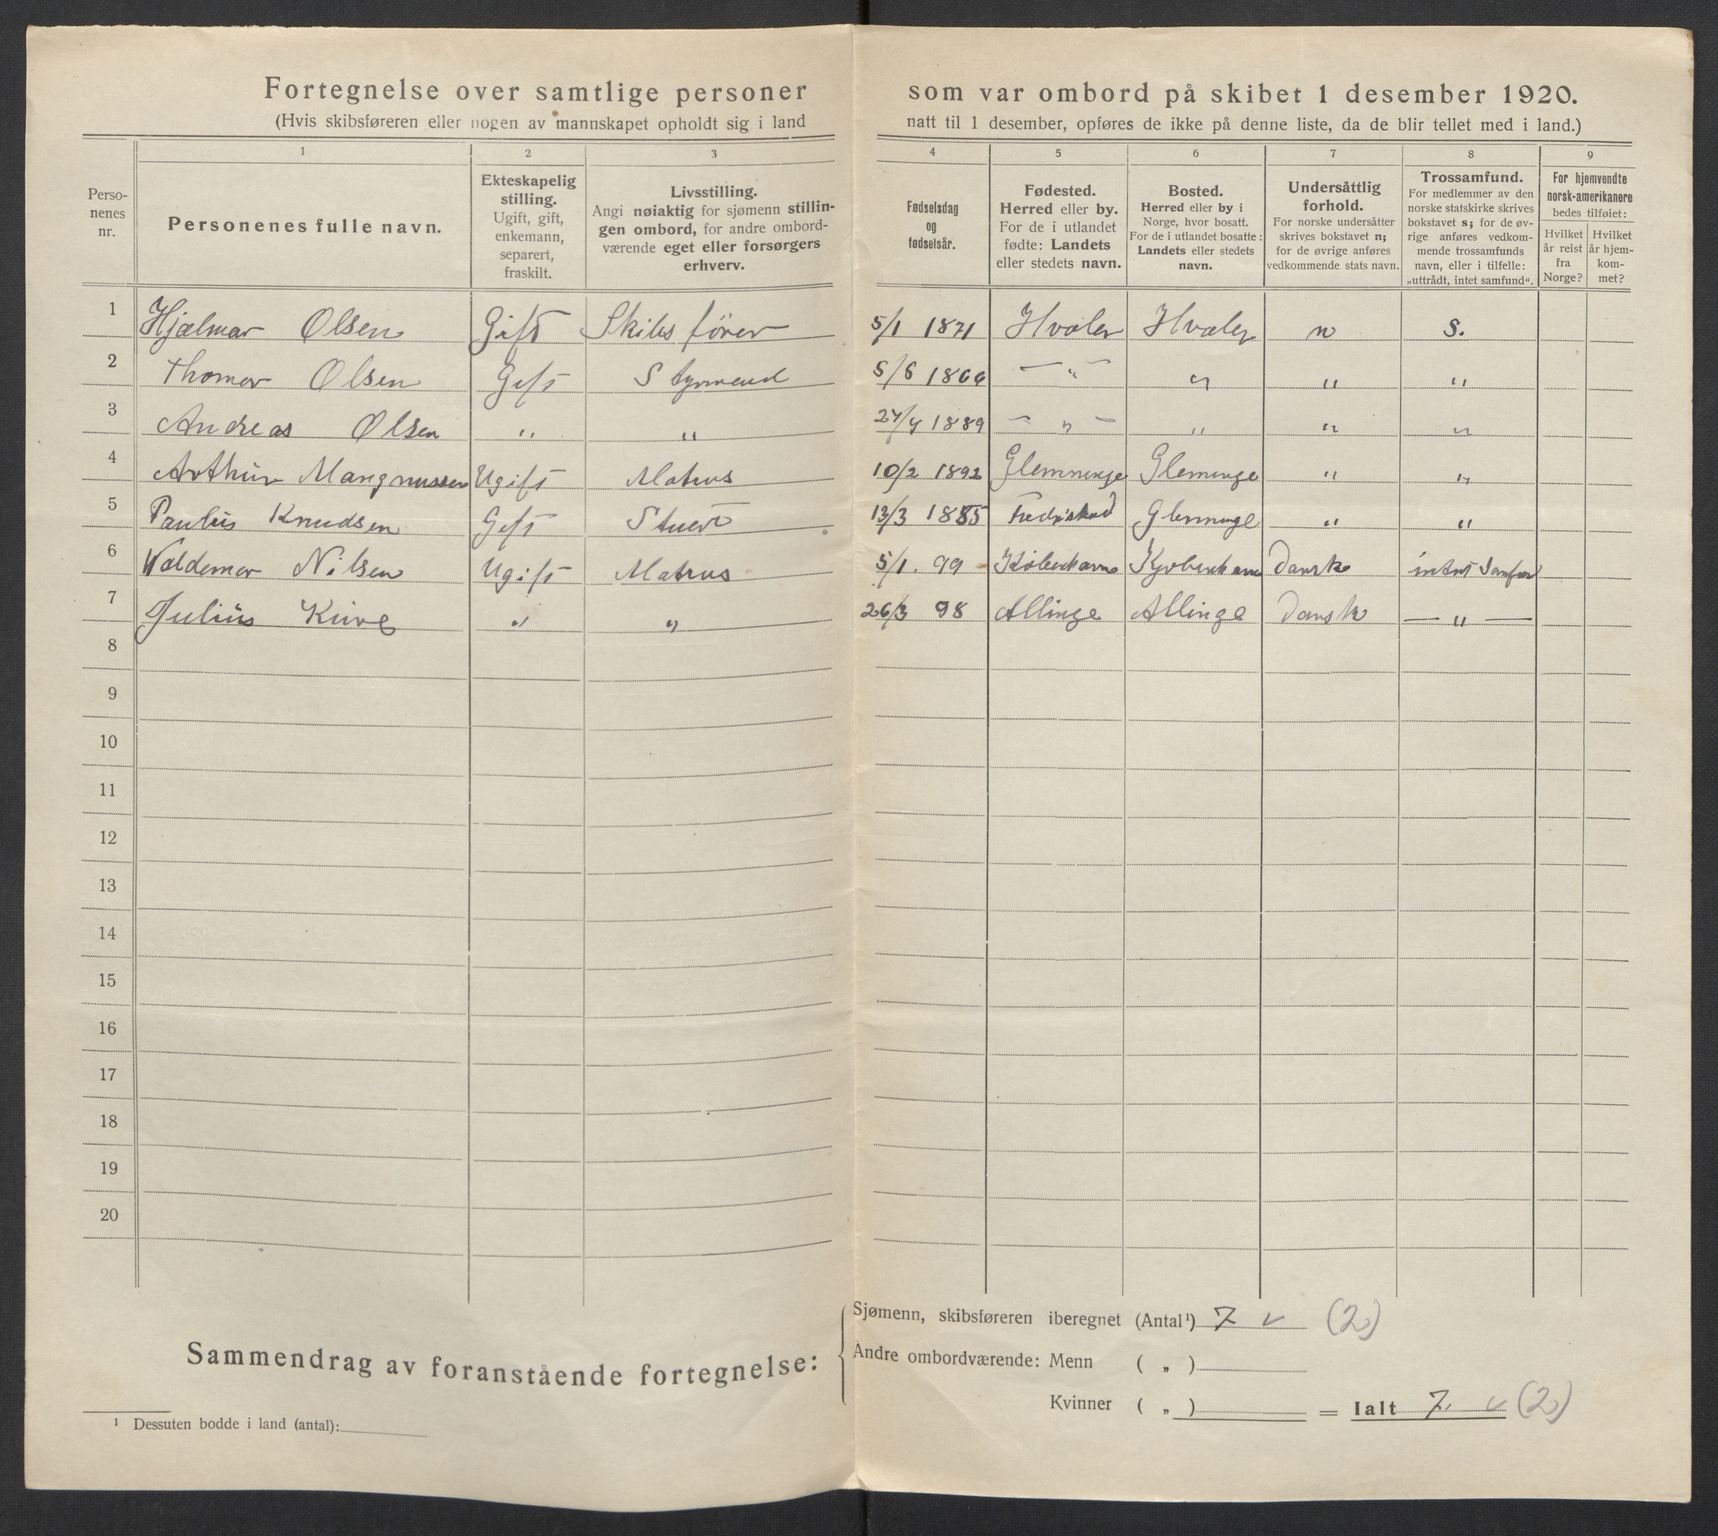 Fortegnelse over samtlige personer som var ombord på skibet 1 desember 1920.
(Hvis skibsføreren eller nogen av mannskapet opholdt sig i land natt til 1 desember, opføres de ikke på denne liste, da de blir tellet med i land.)
Personenes nr.
1
Personenes fulle navn.
2
Ekteskapelig stilling.
Ugift, gift, enkemann, separert, fraskilt.
3
Livsstilling.
Angi nøiaktig for sjømenn stillingen ombord, for andre ombordværende eget eller forsørgers erhverv.
4
Fødselsdag og fødselsår.
5
Fødested.
Herred eller by.
For de i utlandet fødte: Landets eller stedets navn.
6
Bosted.
Herred eller by i Norge, hvor bosatt.
For de i utlandet bosatte: Landets eller stedets navn.
7
Undersåttlig forhold.
For norske undersåtter skrives bokstavet n; for de øvrige anføres vedkommende stats navn.
8
Trossamfund.
For medlemmer av den norske statskirke skrives bokstavet s; for de øvrige anføres vedkommende trossamfunds navn, eller i tilfelle: „uttrådt, intet samfund“.
9
For hjemvendte norsk-amerikanere bedes tilføiet:
Hvilket år reist fra Norge?
Hvilket år hjemkommet?
1 Hjalmar Olsen Gift Skibsfører 5/1 1871 Hvaler Hvaler n s.
2 Thomas Olsen Gift Styrmend 5/6 1866 — „ — „ „ „
3 Andreas Olsen „ „ 27/4 1889 — „ — „ „ „
4 Arthur Mangnussen Ugift Matrus 10/2 1892 Glemninge Gleminge „ „
5 Paulus Knudsen Gift Stuert 13/3 1885 Fredrikstad Glemminge „ „
6 Valdemar Nilsen Ugift Matrus 5/1. 99 København Kjøbenhavn Danske intet Samfun
7 Julius „ „ 26/3 98 Allinge Allinge Dansk — „ —
8
9
10
11
12
13
14
15
16
17
18
19
20
Sammendrag av foranstående fortegnelse:
Sjømenn, skibsføreren iberegnet (Antal¹) 7 v (2)
Andre ombordværende: Menn ( „ )
Kvinner ( „ ) = Ialt 7. v (2)
¹ Dessuten bodde i land (antal):